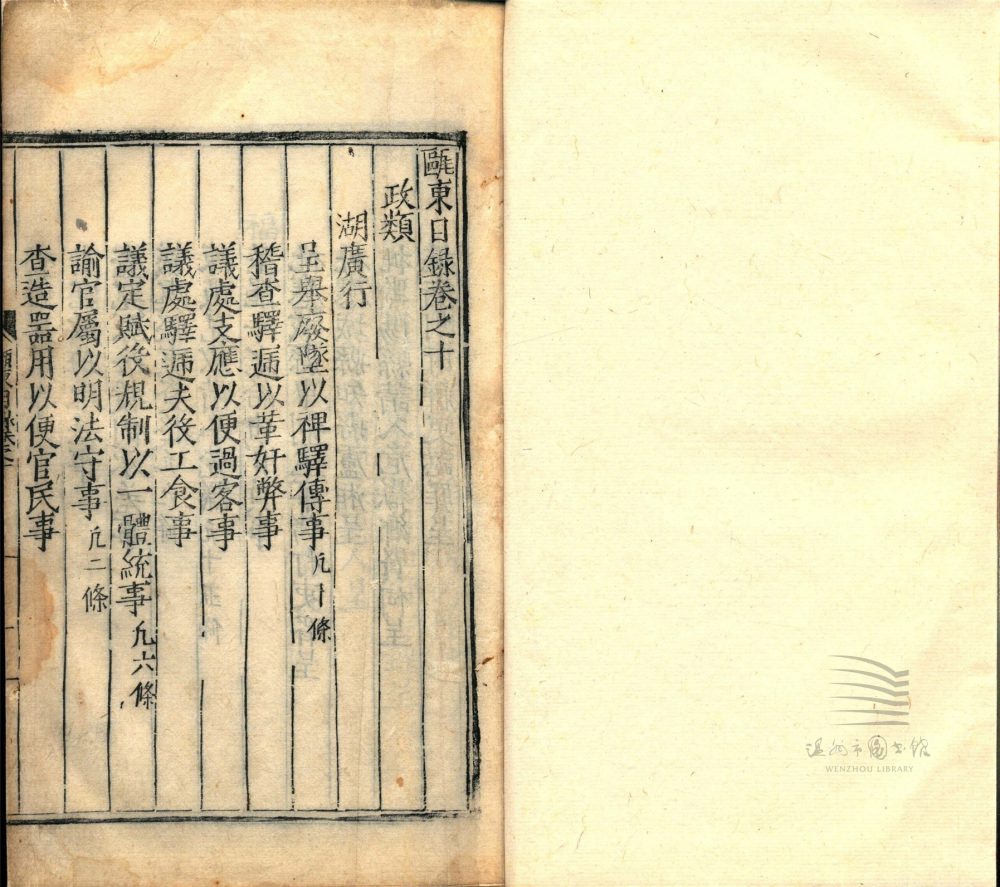 甌東日錄卷之十
政類
湖廣行
呈舉廢墜以裨驛傳事凡十條
稽查驛遞以革奸弊事
議處支應以便過客事
議處驛遞夫役工食事
議定賦役規制以一體統事凡六條
諭官屬以明法守事凡二條
查造器用以便官民事
温州市图书馆
WENZHOU LIBRARY